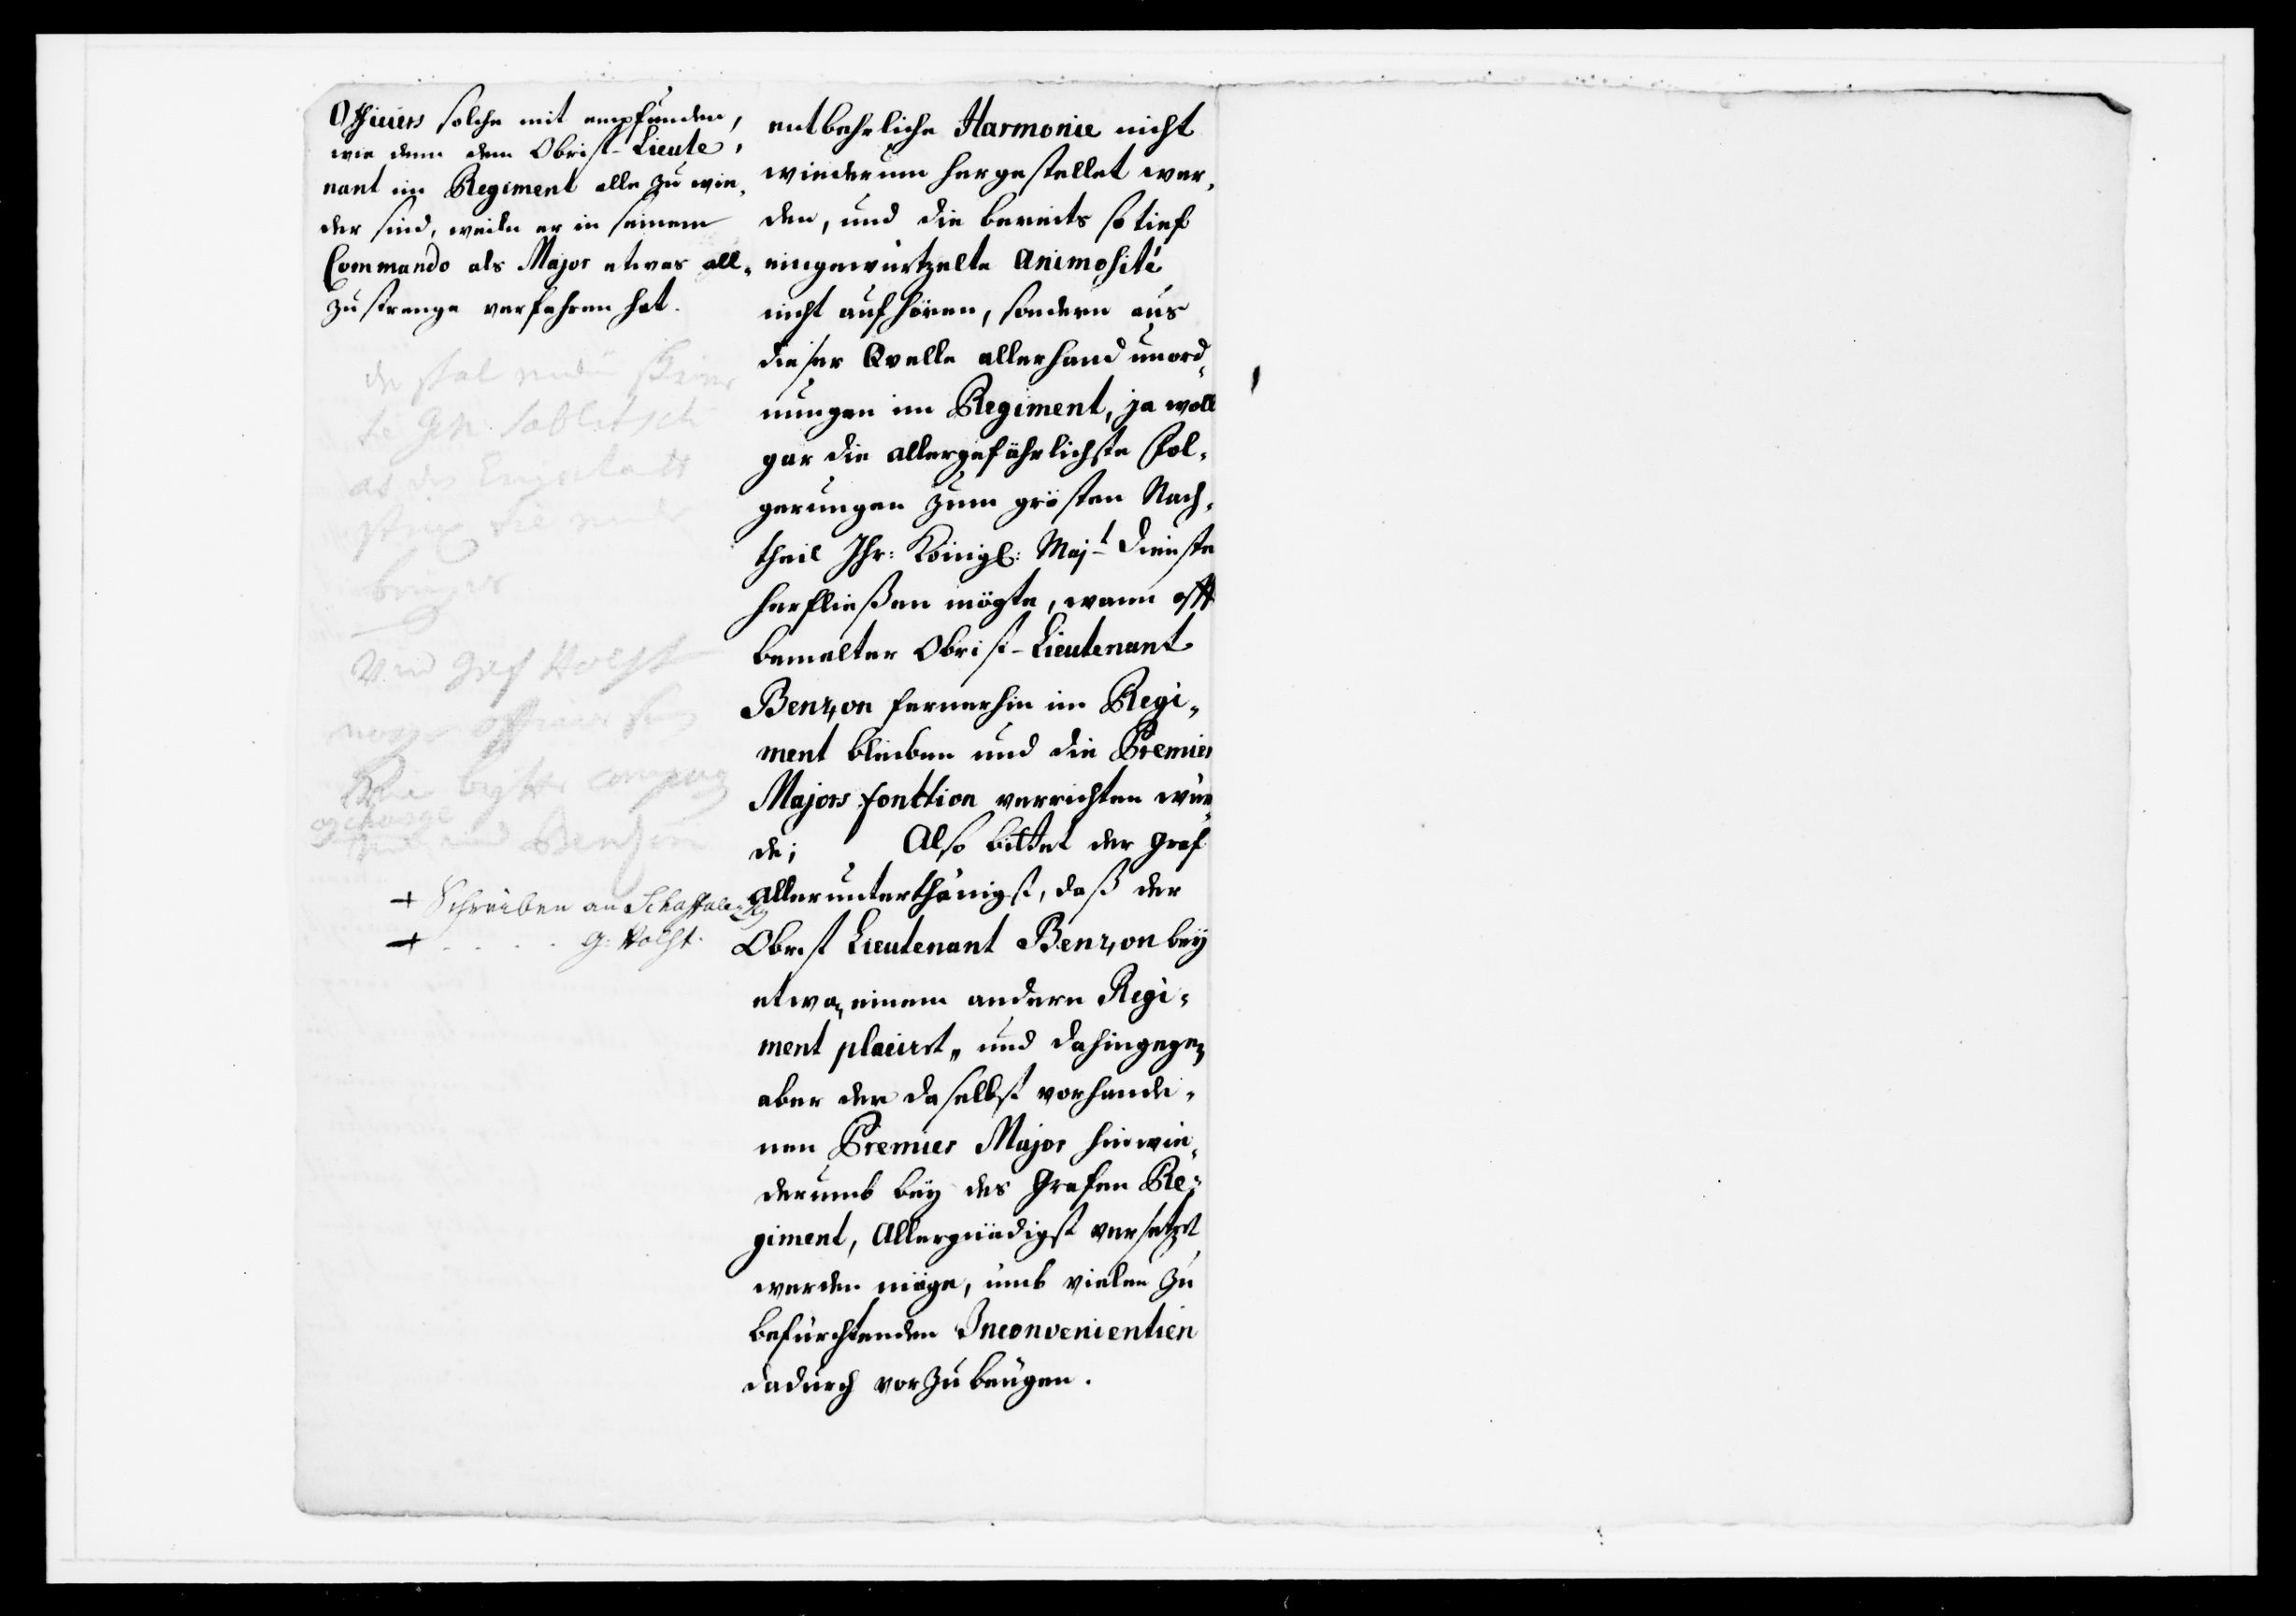 Officiers solche mit empfunden,
wie denn dem Obrist-Lieute,
nant im Regiment alle zu wie,
der sind, weiln er in seinem
Commando als Major etwas all,
zu strenge verfahren hat.
de skal
te Gen:
bringes
Graf Holst
Benzon
+ Schreiben an
+ . . . . . G: Holst.
entbehrliche Harmonie nicht
wiederum hergestellet wer,
den, und die bereits so tief
eingewurtzelte Animosité
nicht aufhören, sondern aus
dieser Qvelle allerhand unord,
nungen im Regiment, ja woll
gar die allergefährlichste Fol,
gerungen zum grösten Nach,
theil Ihr: Königl: Majt Dienste
herfließen mögte, wann offt
bemelter Obrist-Lieutenant
Benzon fernerhin im Regi,,
ment bleiben und die Premier
Majors fonction verrichten wür,
de; Also bittet der Graf
Allerunterthänigst, daß der
Obrist Lieutenant Benzon bey
etwa einem andern Regi,
ment placirt,, und dahingegen
aber der daselbst vorhande,
nen Premier Major hinwie,
derumb bey des Grafen Re,
giment, Allergnädigst versetzet
werden möge, umb vielen zu
befürchtenden Inconvenientien
dadurch vorzubeugen.